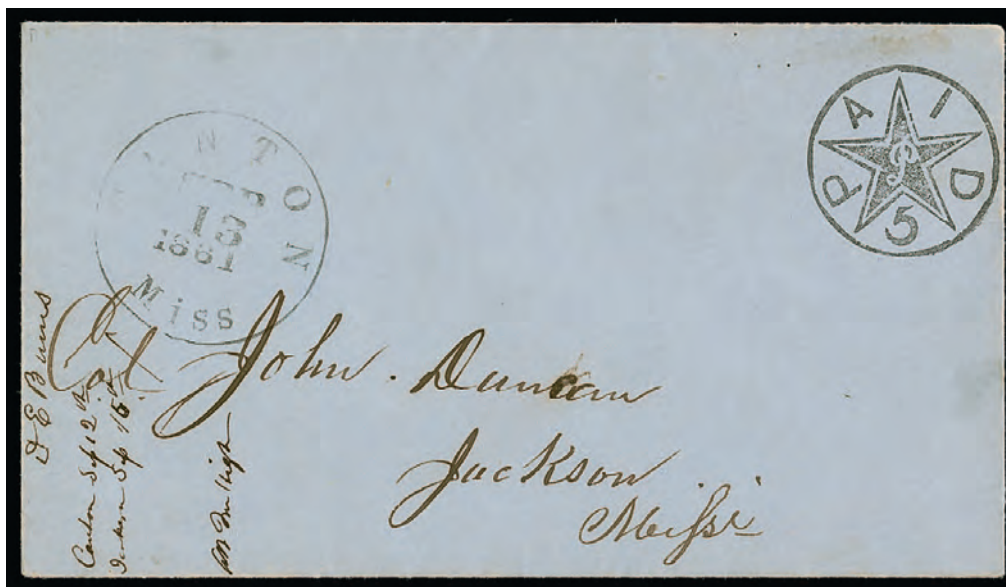 PAID
5
NTON
13
1861
Miss
Col John. Duncan
Jackson
Missi
D E Burns
Canton Sep 12th
Jackson Sep 15th